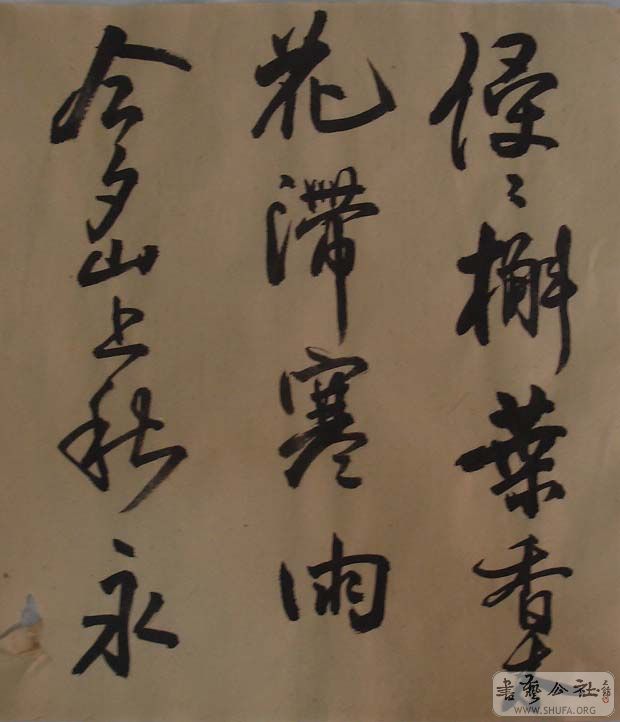 侵〻槲葉香木
花滯寒雨
今夕山上秋永
書藝公社
WWW.SHUFA.ORG